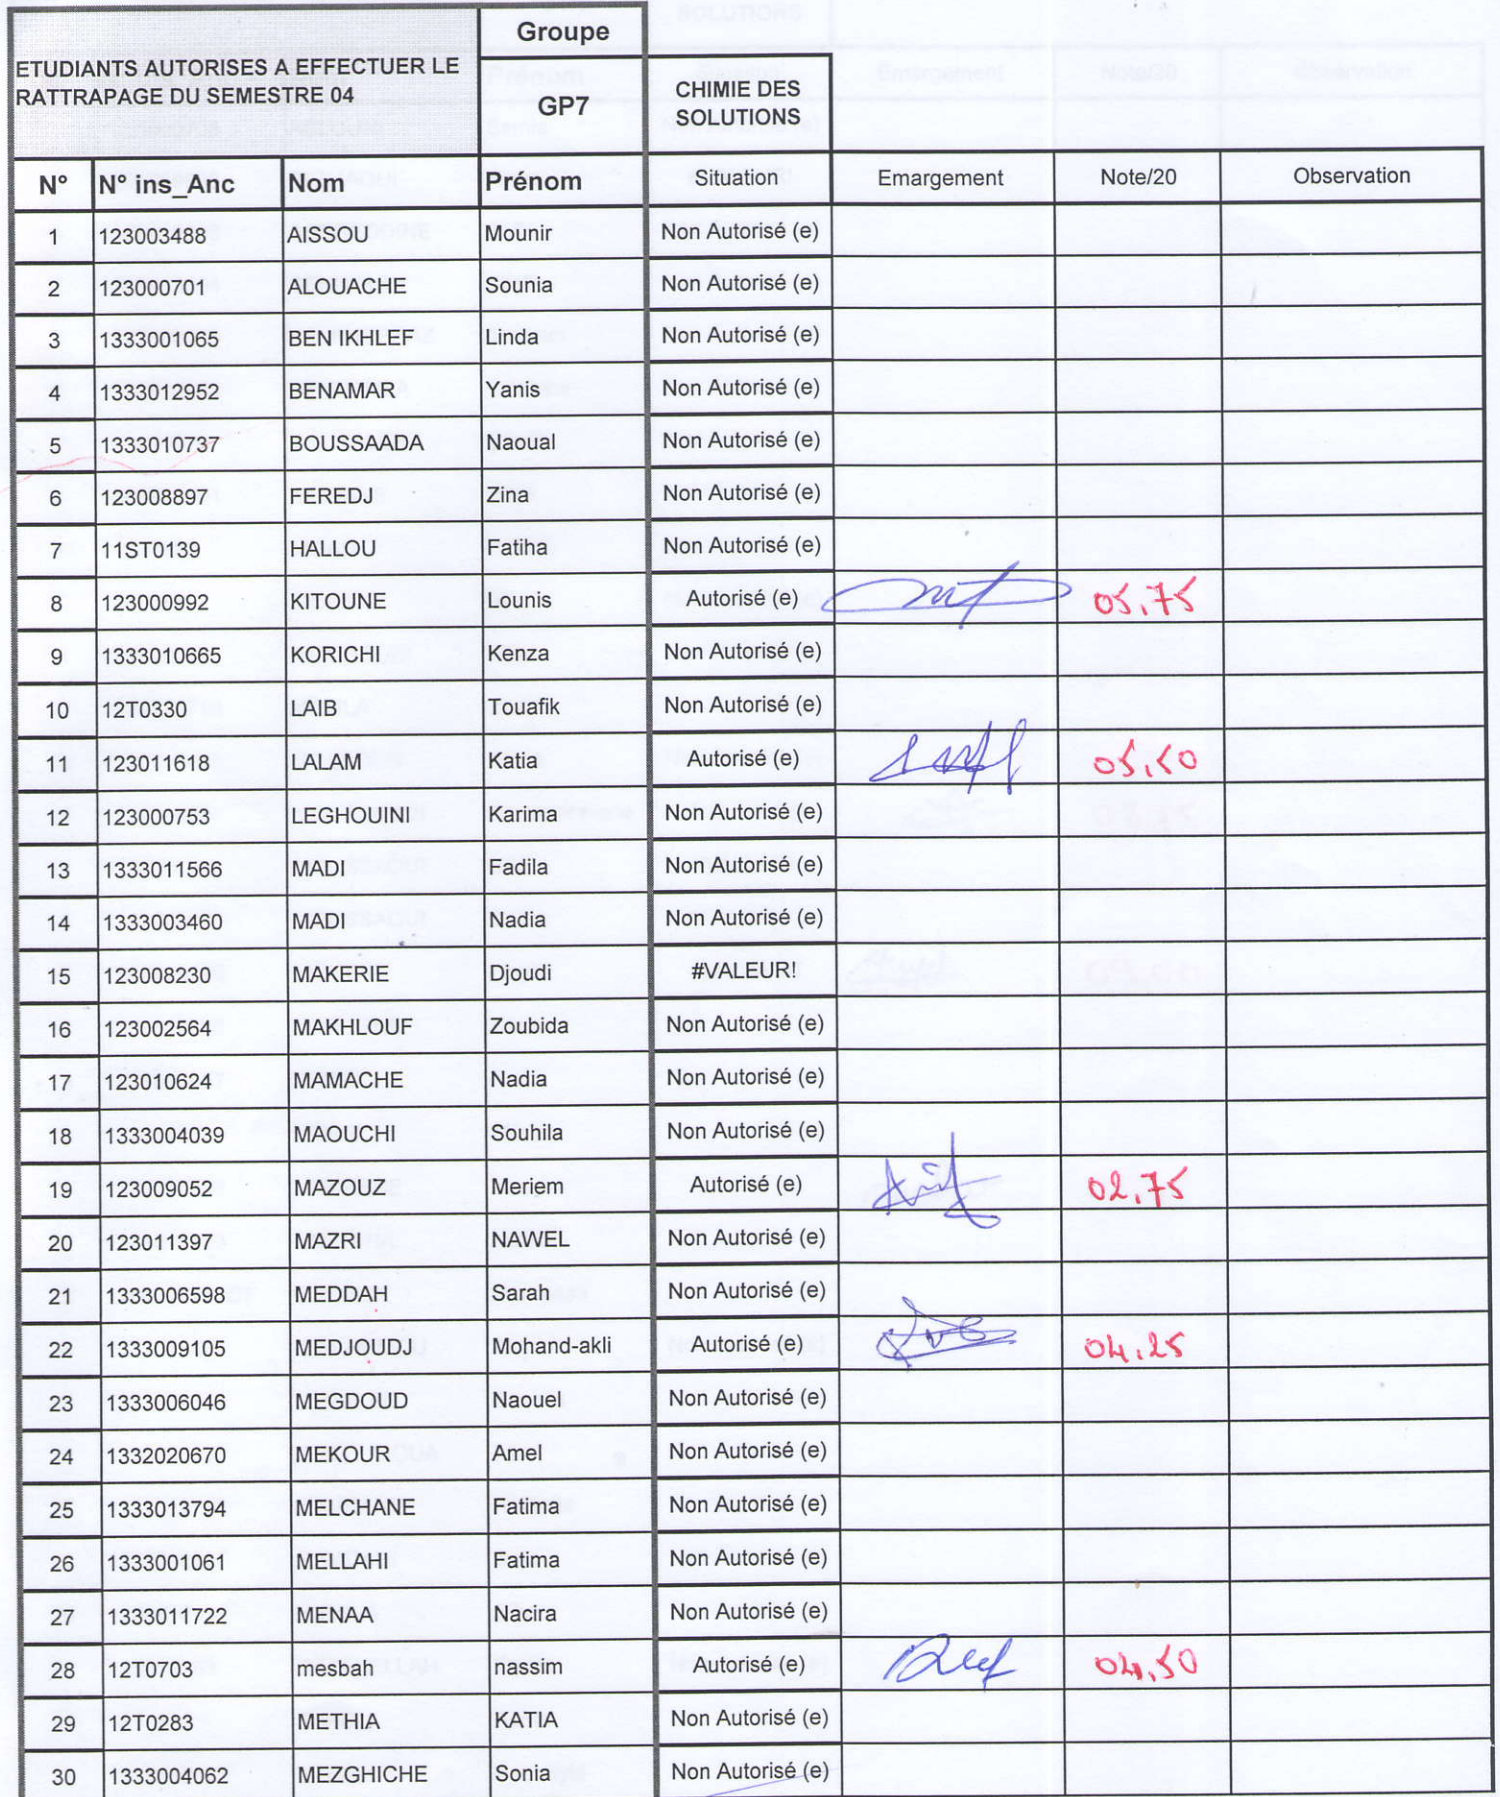 Groupe
ETUDIANTS AUTORISES A EFFECTUER LE
RATTRAPAGE DU SEMESTRE 04
GP7
CHIMIE DES
SOLUTIONS
N° N° ins_Anc Nom Prénom Situation Emargement Note/20 Observation
1 123003488 AISSOU Mounir Non Autorisé (e)
2 123000701 ALOUACHE Sounia Non Autorisé (e)
3 1333001065 BEN IKHLEF Linda Non Autorisé (e)
4 1333012952 BENAMAR Yanis Non Autorisé (e)
5 1333010737 BOUSSAADA Naoual Non Autorisé (e)
6 123008897 FEREDJ Zina Non Autorisé (e)
7 11ST0139 HALLOU Fatiha Non Autorisé (e)
8 123000992 KITOUNE Lounis Autorisé (e) 05,75
9 1333010665 KORICHI Kenza Non Autorisé (e)
10 12T0330 LAIB Touafik Non Autorisé (e)
11 123011618 LALAM Katia Autorisé (e) 05,50
12 123000753 LEGHOUINI Karima Non Autorisé (e)
13 1333011566 MADI Fadila Non Autorisé (e)
14 1333003460 MADI Nadia Non Autorisé (e)
15 123008230 MAKERIE Djoudi #VALEUR!
16 123002564 MAKHLOUF Zoubida Non Autorisé (e)
17 123010624 MAMACHE Nadia Non Autorisé (e)
18 1333004039 MAOUCHI Souhila Non Autorisé (e)
19 123009052 MAZOUZ Meriem Autorisé (e) 02,75
20 123011397 MAZRI NAWEL Non Autorisé (e)
21 1333006598 MEDDAH Sarah Non Autorisé (e)
22 1333009105 MEDJOUDJ Mohand-akli Autorisé (e) 04,25
23 1333006046 MEGDOUD Naouel Non Autorisé (e)
24 1332020670 MEKOUR Amel Non Autorisé (e)
25 1333013794 MELCHANE Fatima Non Autorisé (e)
26 1333001061 MELLAHI Fatima Non Autorisé (e)
27 1333011722 MENAA Nacira Non Autorisé (e)
28 12T0703 mesbah nassim Autorisé (e) 04,50
29 12T0283 METHIA KATIA Non Autorisé (e)
30 1333004062 MEZGHICHE Sonia Non Autorisé (e)